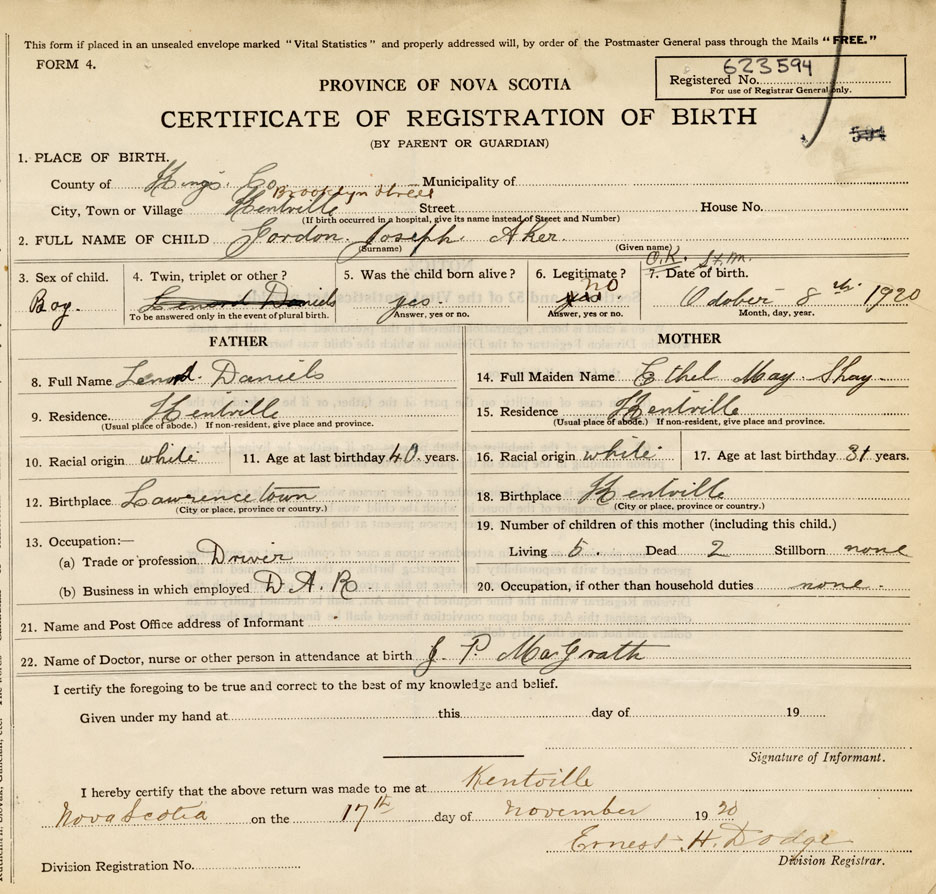 This form if placed in an unsealed envelope marked "Vital Statistics" and properly addressed will, by order of the Postmaster General pass through the Mails "FREE."
FORM 4.
623594
Registered No.
For use of Registrar General only.
PROVINCE OF NOVA SCOTIA
CERTIFICATE OF REGISTRATION OF BIRTH
(BY PARENT OR GUARDIAN)
594
1. PLACE OF BIRTH.
County of Kings Co. Municipality of
Brooklyn Street
City, Town or Village Kentville Street House No.
(If birth occurred in a hospital, give its name instead of Street and Number)
2. FULL NAME OF CHILD Gordon Joseph Aker
(Surname) (Given name)
O.K. St.M.
3. Sex of child. 4. Twin, triplet or other? 5. Was the child born alive? 6. Legitimate? 7. Date of birth.
no
Boy. Lenord Daniels yes. yes October 8th 1920
To be answered only in the event of plural birth. Answer, yes or no. Answer, yes or no. Month, day, year.
FATHER MOTHER
8. Full Name Lenord Daniels 14. Full Maiden Name Ethel May Shay
9. Residence Kentville 15. Residence Kentville
(Usual place of abode.) If non-resident, give place and province. (Usual place of abode.) If non-resident, give place and province.
10. Racial origin white 11. Age at last birthday 40 years. 16. Racial origin white 17. Age at last birthday 31 years.
12. Birthplace Lawrencetown 18. Birthplace Kentville
(City or place, province or country.) (City or place, province or country.)
19. Number of children of this mother (including this child.)
13. Occupation:—
(a) Trade or profession Driver Living 5. Dead 2 Stillborn none
(b) Business in which employed D A R. 20. Occupation, if other than household duties none.
21. Name and Post Office address of Informant
22. Name of Doctor, nurse or other person in attendance at birth J. P. MaGrath
I certify the foregoing to be true and correct to the best of my knowledge and belief.
Given under my hand at this day of 19
Signature of Informant.
I hereby certify that the above return was made to me at Kentville
Nova Scotia on the 17th day of November 1920
Ernest H. Dodge
Division Registration No. Division Registrar.